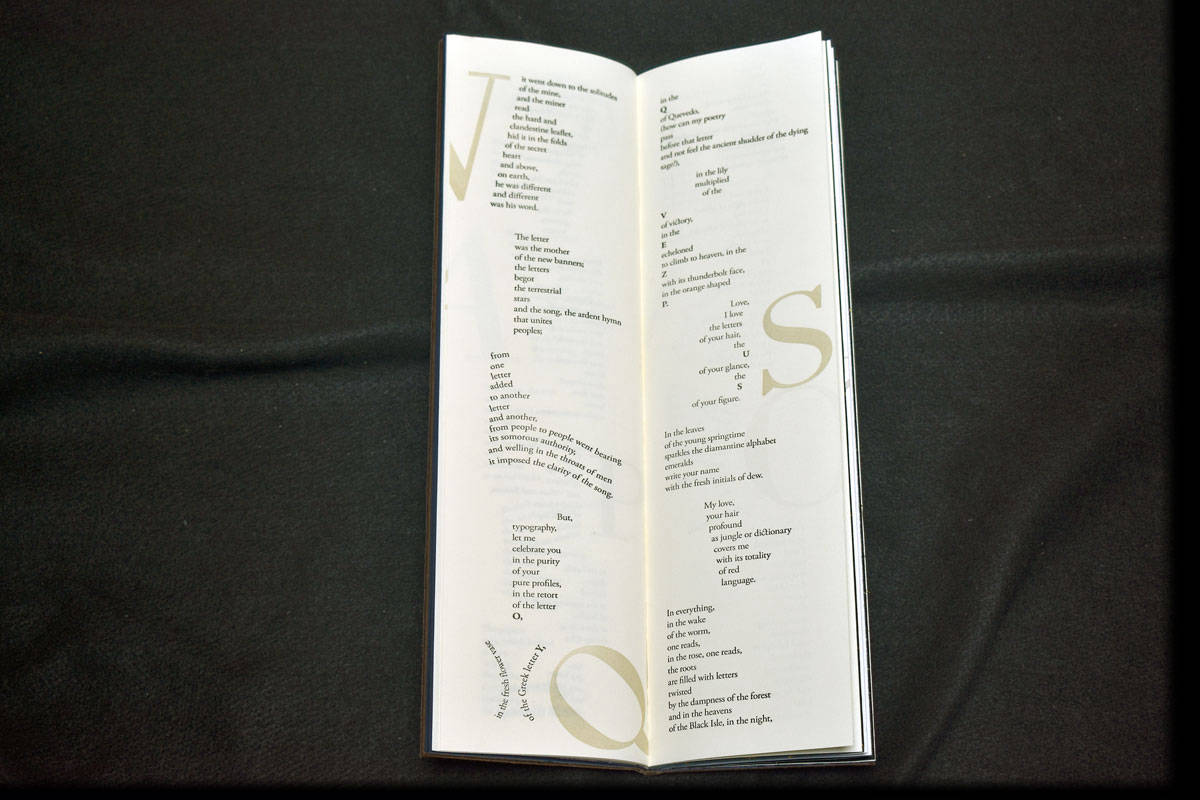 it went down to the solitudes
of the mine,
and the miner
read
the hard and
clandestine leaflet,
hid it in the folds
of the secret
heart
and above,
on earth,
he was different
and different
was his word.
The letter
was the mother
of the new banners;
the letters
begot
the terrestrial
stars
and the song, the ardent hymn
that unites
peoples;
from
one
letter
added
to another
letter
and another,
from people to people went bearing
its somorous authority,
and welling in the throats of men
it imposed the clarity of the song.
But,
typography,
let me
celebrate you
in the purity
of your
pure profiles,
in the retort
of the letter
O,
in the fresh flower vase
of the Greek letter Y,
Q
in the
Q
of Quevedo,
(how can my poetry
pass
before that letter
and not feel the ancient shudder of the dying
sage?),
in the lily
multiplied
of the
V
of victory,
in the
E
echeloned
to climb to heaven, in the
Z
with its thunderbolt face,
in the orange shaped
P.
Love,
I love
the letters
of your hair,
the
U
of your glance,
the
S
of your figure.
S
In the leaves
of the young springtime
sparkles the diamantine alphabet
emeralds
write your name
with the fresh initials of dew.
My love,
your hair
profound
as jungle or dictionary
covers me
with its totality
of red
language.
In everything,
in the wake
of the worm,
one reads,
in the rose, one reads,
the roots
are filled with letters
twisted
by the dampness of the forest
and in the heavens
of the Black Isle, in the night,